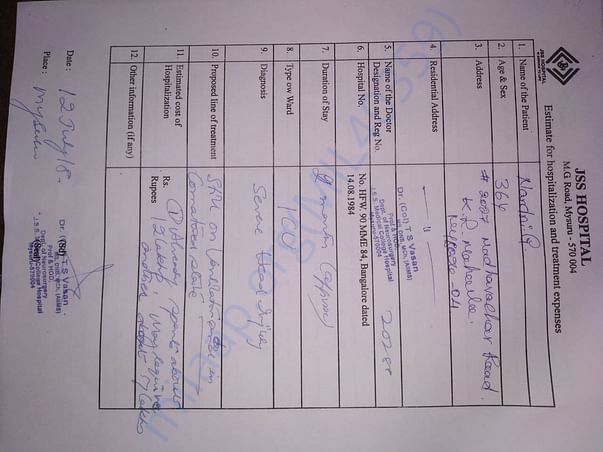 JSS HOSPITAL
M.G Road, Mysuru - 570 004
Estimate for hospitalization and treatment expenses
JSS HOSPITAL
1. Name of the Patient
2. Age & Sex 36y
3. Address # 2087 Road
K.R. Mohalla
4. Residential Address — " —
5. Name of the Doctor
Designation and Reg No.
Dr. (Col) T S Vasan
Prof & HOD
Dept. of Neurosurgery
J.S.S. Medical College Hospital
Mysuru-570004
6. Hospital No. No. HFW. 90 MME 84, Bangalore dated
14.08.1984
7. Duration of Stay months (approx)
8. Type ow Ward ICU
9. Diagnosis Severe Head Injury
10. Proposed line of treatment Still on Ventilator in
Comatose state
11. Estimated cost of
Hospitalization
Rs. Already spent about
Rupees 12 lakhs, May require
another about lakhs
12. Other information (if any)
Date : 12 July 18.
Place : Mysuru
Dr. (Col) T S Vasan
Prof & HOD
Dept. of Neurosurgery
J.S.S. Medical College Hospital
Mysuru-570004